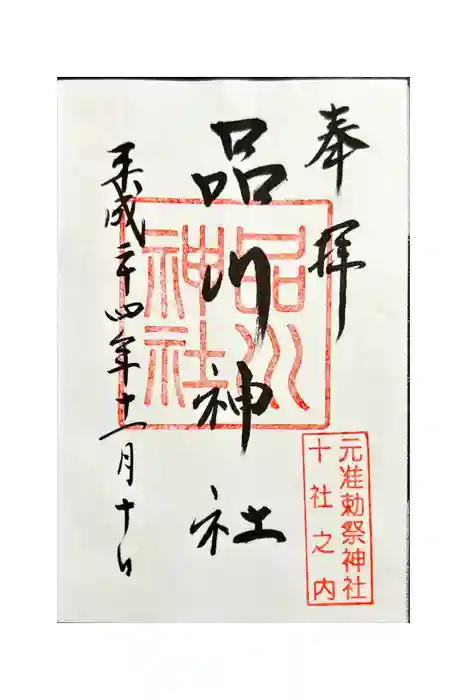 奉拝
品川神社
平成二十四年十一月十日
品川
神社
元准勅祭神社
十社之内